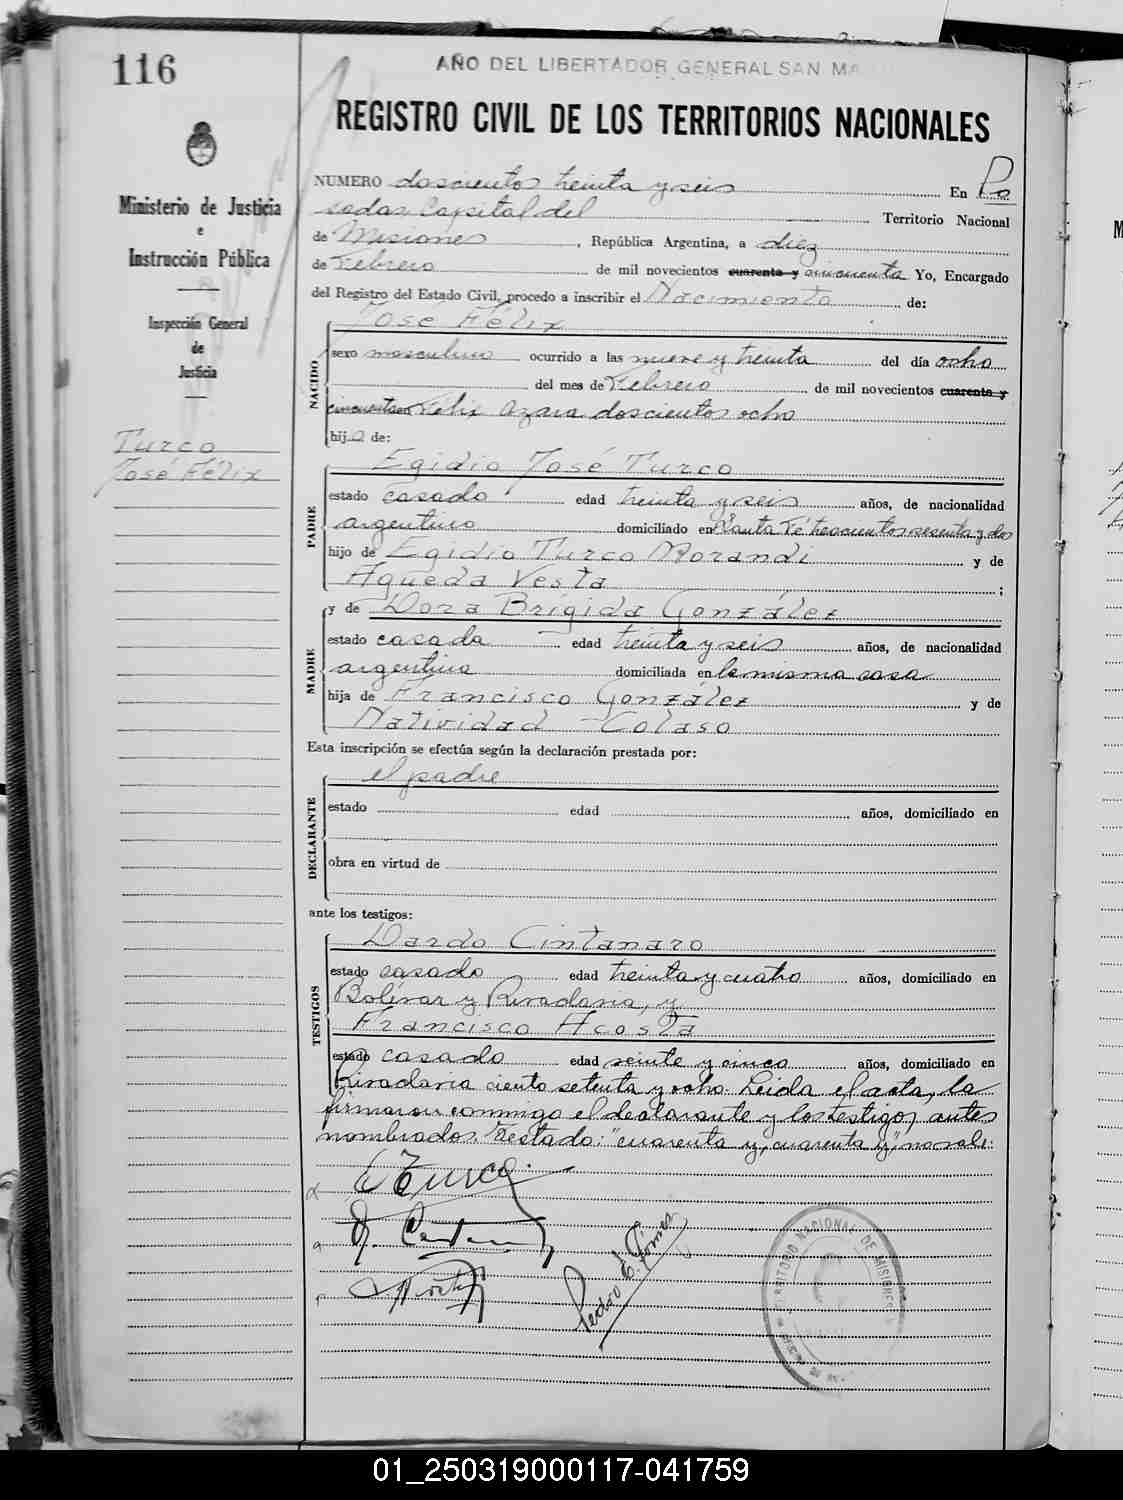 116
AÑO DEL LIBERTADOR GENERAL SAN MA
REGISTRO CIVIL DE LOS TERRITORIOS NACIONALES
Ministerio de Justicia
e
Instrucción Pública
Inspección General
de
Justicia
Turco
José Félix
NUMERO doscientos treinta y seis En Po
sadas Capital del Territorio Nacional
de Misiones, República Argentina, a diez
de Febrero de mil novecientos cuarenta y cincuenta Yo, Encargado
del Registro del Estado Civil, procedo a inscribir el Nacimiento de:
NACIDO
José Félix
sexo masculino ocurrido a las nueve y treinta del día ocho
del mes de Febrero de mil novecientos cuarenta y
cincuenta en Félix Azara doscientos ocho
hijo de:
PADRE
Egidio José Turco
estado casado edad treinta y seis años, de nacionalidad
argentino domiciliado en Santa Fé trescientos sesenta y dos
hijo de Egidio Turco Morandi y de
Agueda Vesta ;
MADRE
y de Dora Brígida González
estado casada edad treinta y seis años, de nacionalidad
argentina domiciliada en la misma casa
hija de Francisco González y de
Natividad Colaso
Esta inscripción se efectúa según la declaración prestada por:
DECLARANTE
el padre
estado edad años, domiciliado en
obra en virtud de
ante los testigos:
TESTIGOS
Dardo Cintanaro
estado casado edad treinta y cuatro años, domiciliado en
Bolívar y Rivadavia, y
Francisco Acosta
estado casado edad veinte y cinco años, domiciliado en
Rivadavia ciento setenta y ocho. Leida el acta, la
firmaron conmigo el declarante y los testigos antes
nombrados. Testado: "cuarenta y, cuarenta y", no vale:
E Turco
Pedro E. Gomez
TERRITORIO NACIONAL DE MISIONES
01_250319000117-041759